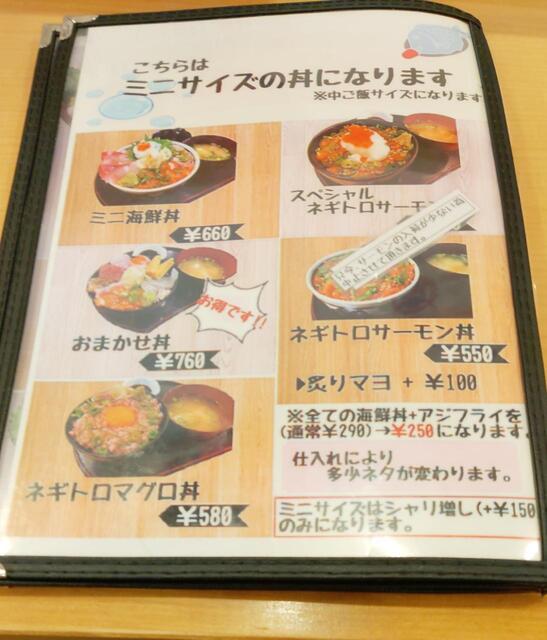 こちらは
ミニサイズの丼になります
※中ご飯サイズになります
ミニ海鮮丼
¥660
スペシャル
ネギトロサーモン
只今、サーモンの入荷が少ない為
中止させて頂きます。
おまかせ丼
¥760
お得です!!
ネギトロサーモン丼
¥550
▶炙りマヨ + ¥100
ネギトロマグロ丼
¥580
※全ての海鮮丼+アジフライを
(通常¥290)→¥250になります。
仕入れにより
多少ネタが変わります。
ミニサイズはシャリ増し(+¥150
のみになります。